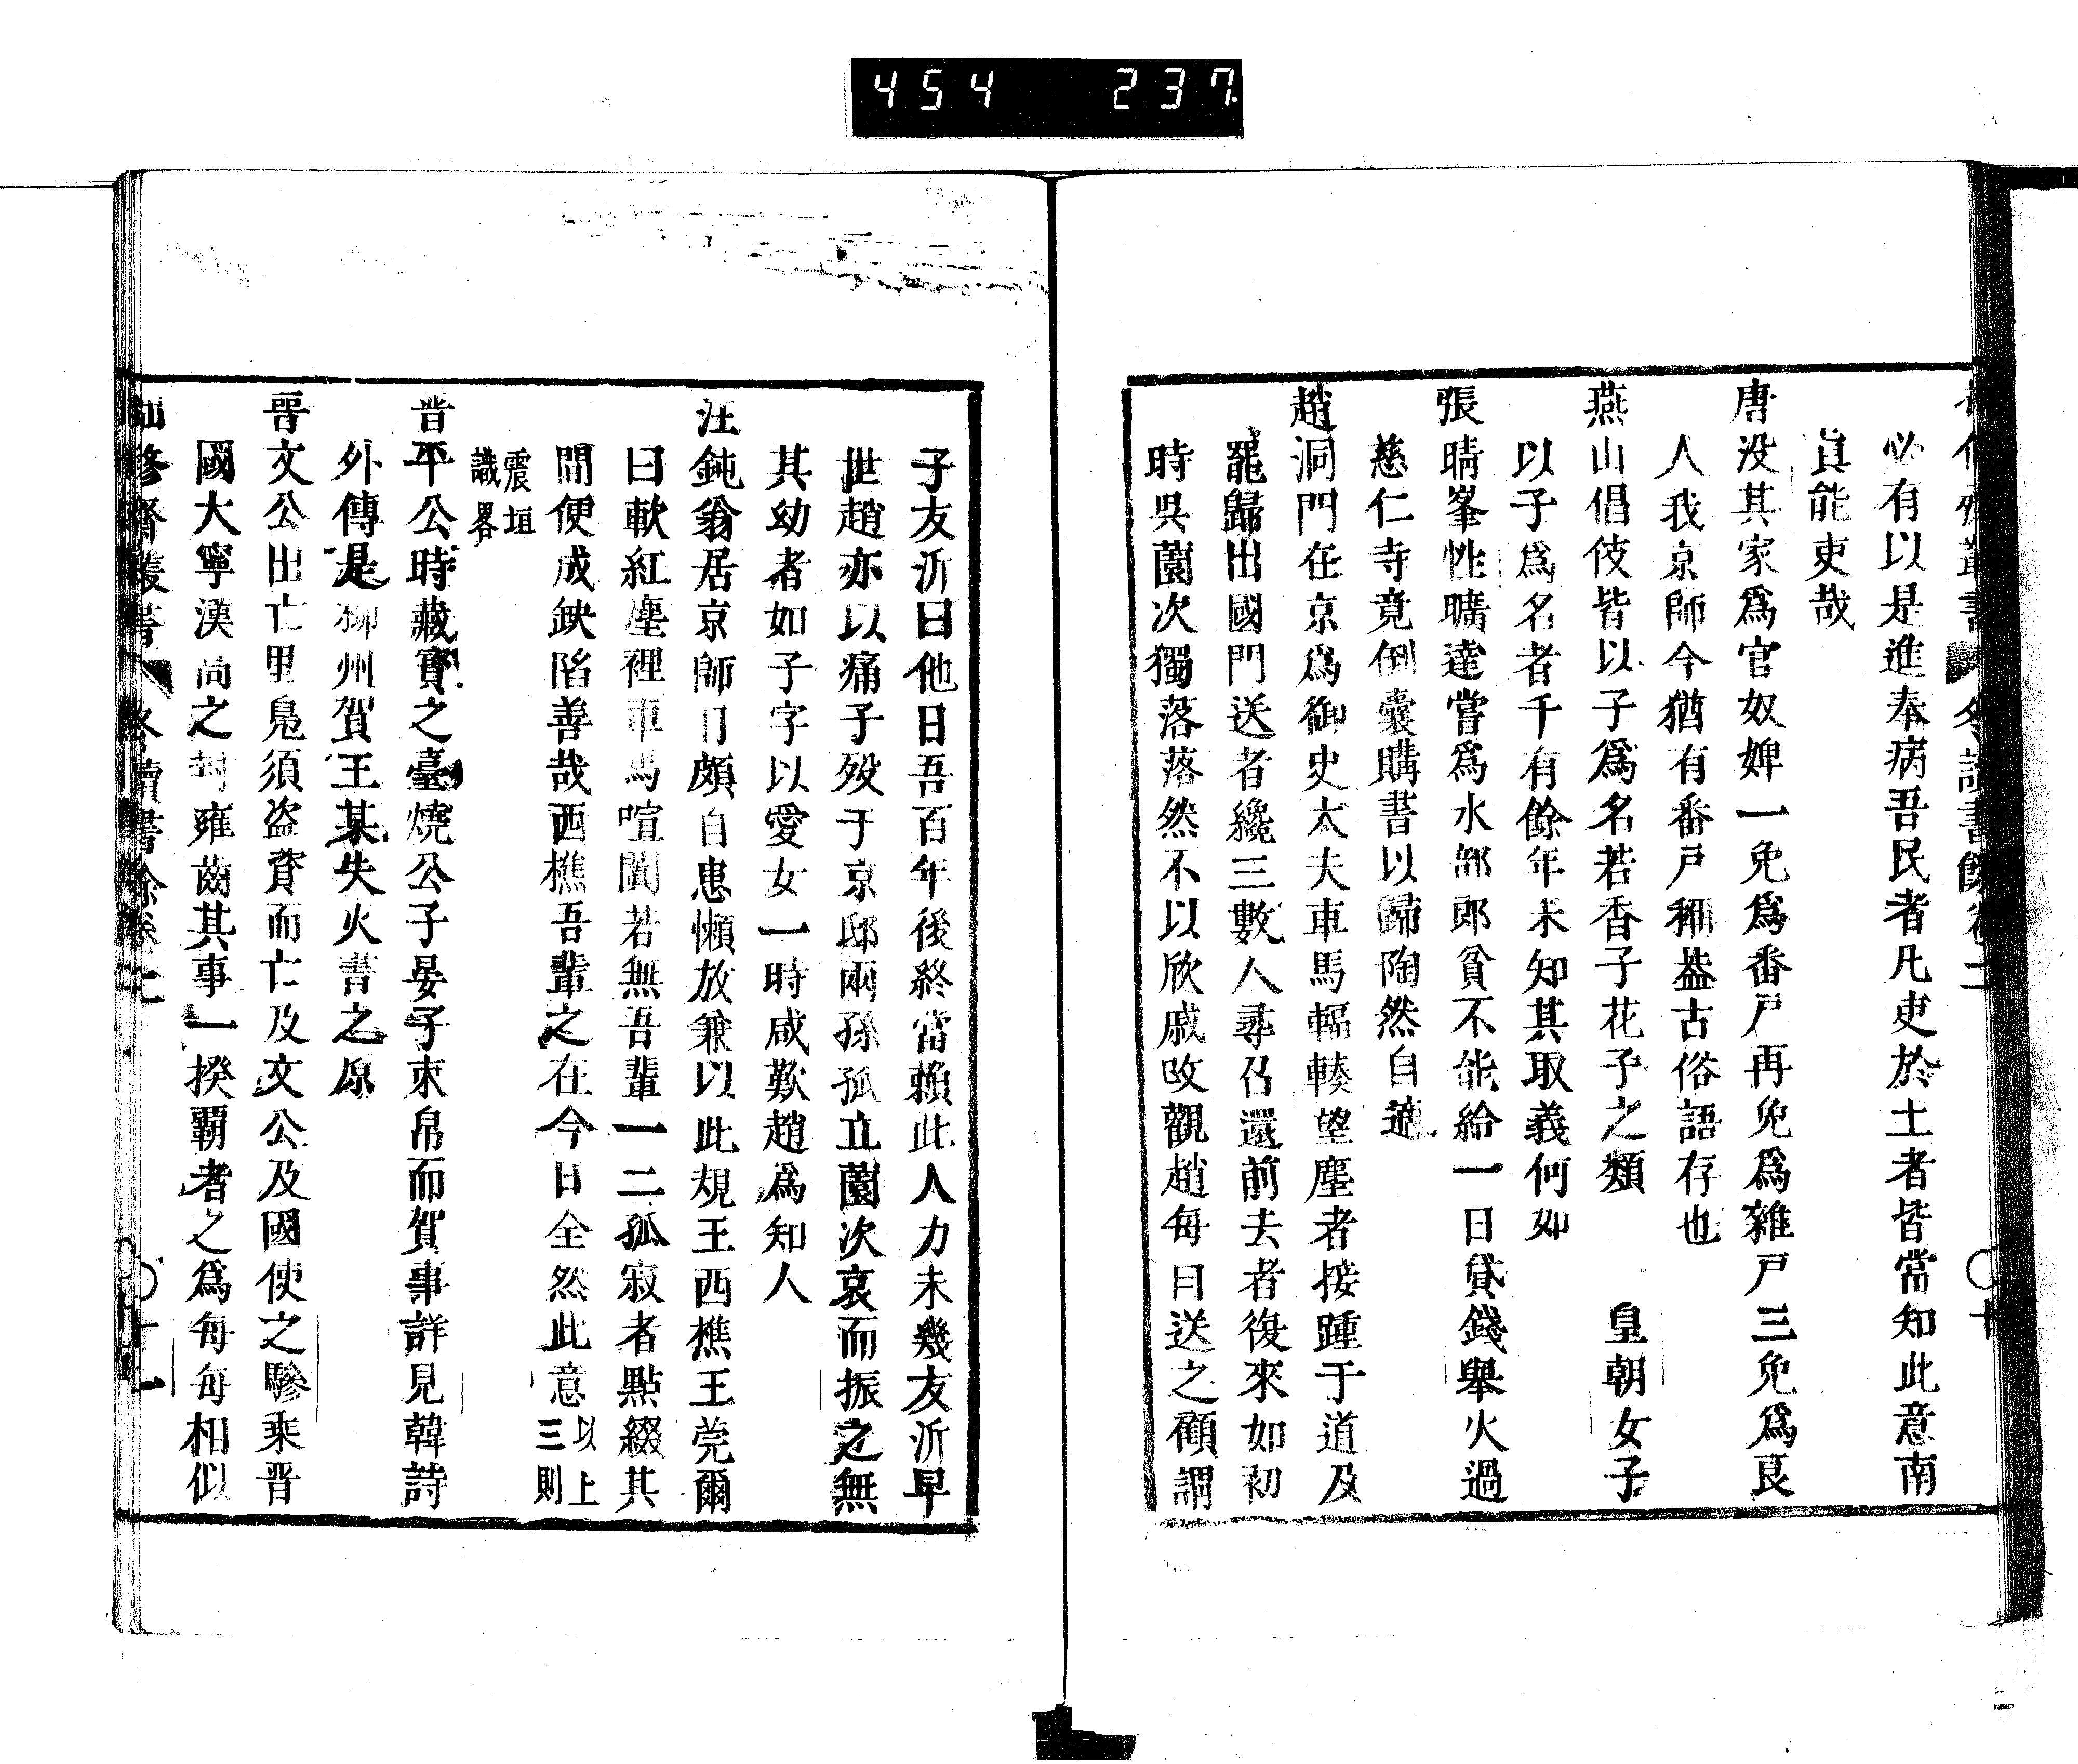 454 237
必有以是進奉病吾民者凡吏於土者皆當知此意南
真能吏哉
唐没其家爲官奴婢一免爲番戸再免爲雜戸三免爲良
人我京師今猶有番戸稱葢古俗語存也
燕山倡伎皆以子爲名若香子花子之類　皇朝女子
以子爲名者千有餘年未知其取義何如
張晴峯性曠達嘗爲水部郎貧不能給一日貸錢舉火過
慈仁寺竟倒囊購書以歸陶然自適
趙洞門在京爲御史大夫車馬輻輳望塵者接踵于道及
罷歸出國門送者纔三數人尋召還前去者復來如初
時吳薗次獨落落然不以欣戚改觀趙每目送之顧謂
子友沂曰他日吾百年後終當賴此人力未幾友沂早
世趙亦以痛子歿于京邸兩孫孤立薗次哀而振之無
其幼者如子字以愛女一時咸歎趙爲知人
汪鈍翁居京師日頗自患懶放兼以此規王西樵王莞爾
曰軟紅塵裡車馬喧闐若無吾輩一二孤寂者點綴其
間便成缺陷善哉西樵吾輩之在今日全然此意以上三則
震垣識畧
晋平公時藏寶之臺燒公子晏子束帛而賀事詳見韓詩
外傳是柳州賀王某失火書之原
晋文公出亡里鳧須盗賫而亡及文公及國使之驂乘晋
國大寧漢高之封雍齒其事一揆覇者之爲每每相似
修齋叢書 冬讀書餘卷二 〇十一